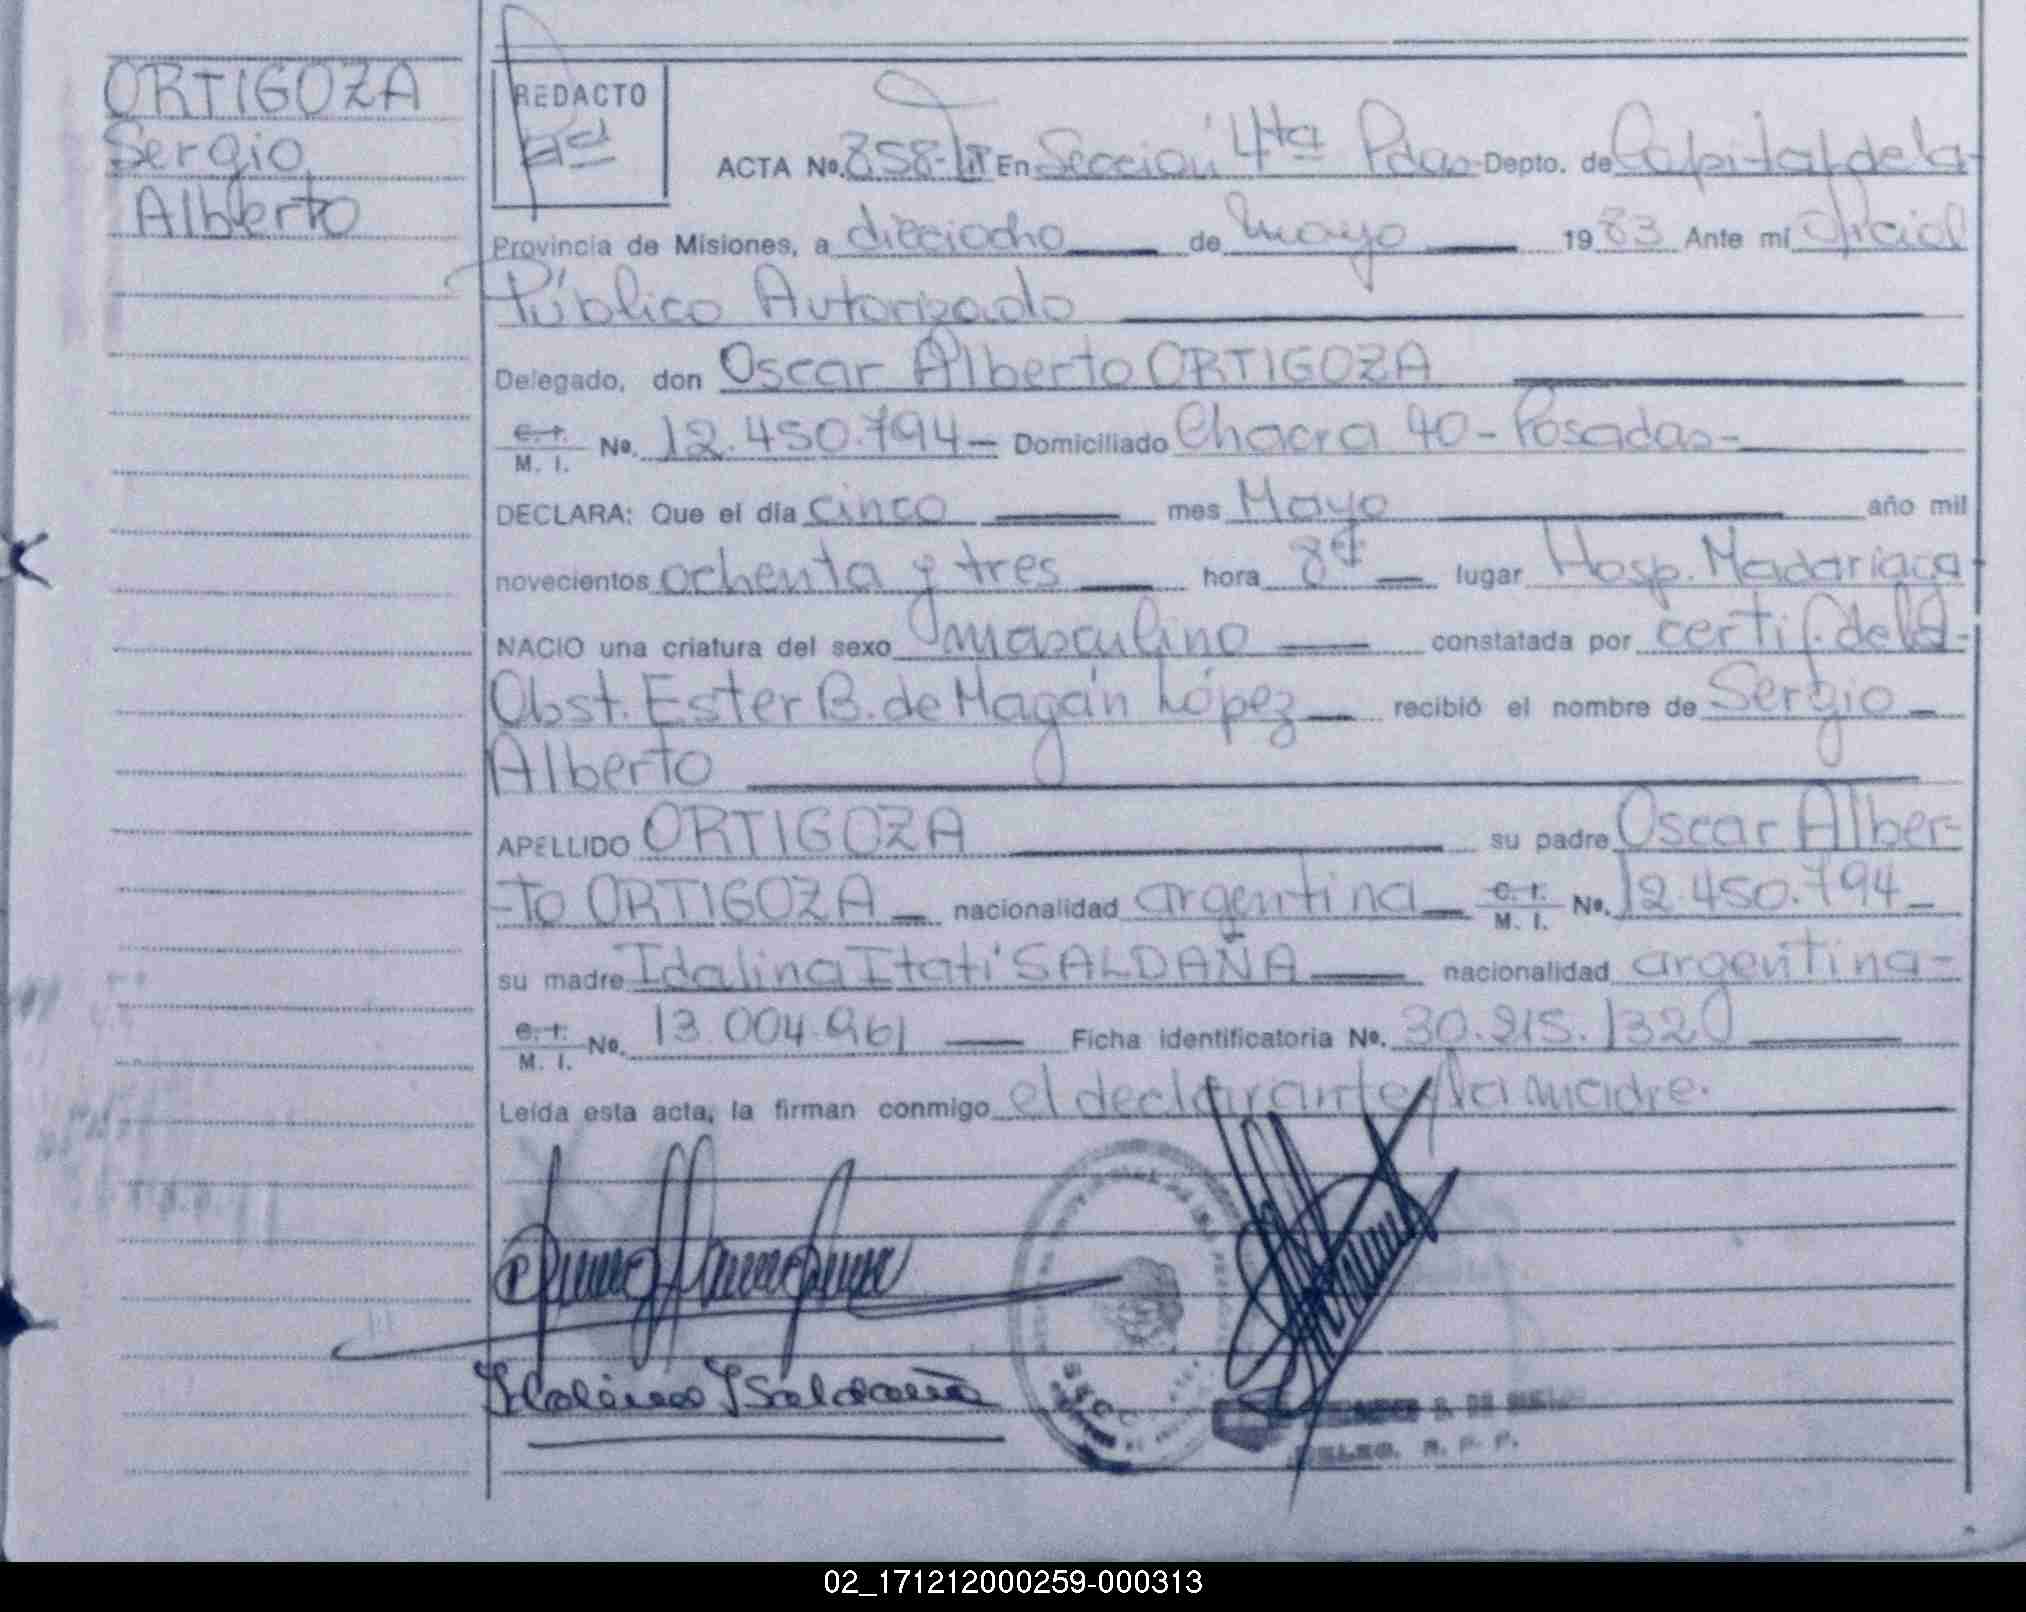 ORTIGOZA
Sergio
Alberto
REDACTO
ACTA No. 858- En Sección 4ta Pdas- Depto. de Capital de la-
Provincia de Misiones, a dieciocho de mayo 1983 Ante mí Oficial
Público Autorizado
Delegado, don Oscar Alberto ORTIGOZA
C. I.
M. I. No. 12.450.794- Domiciliado Chacra 40-Posadas-
DECLARA: Que el día cinco mes Mayo año mil
novecientos ochenta y tres hora 8 lugar Hosp. Madariaga-
NACIO una criatura del sexo masculino constatada por certif. de la-
Obst. Ester B. de Magán López recibió el nombre de Sergio
Alberto
APELLIDO ORTIGOZA su padre Oscar Alber-
-to ORTIGOZA nacionalidad argentina C. I.
M. I. No. 12.450.794-
su madre Idalina Itatí SALDAÑA nacionalidad argentina-
C. I.
M. I. No. 13.004.961 Ficha identificatoria No. 30.215.132
Leída esta acta, la firman conmigo el declarante y la madre.
Idalina I Saldaña
02_171212000259-000313